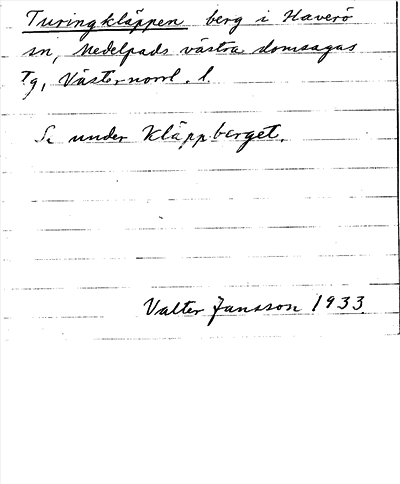 Turingkläppen berg i Haverö
sn, Medelpads västra domsagas
Tg, Västernorrl. l.
Se under Kläppberget.
Valter Jansson 1933.